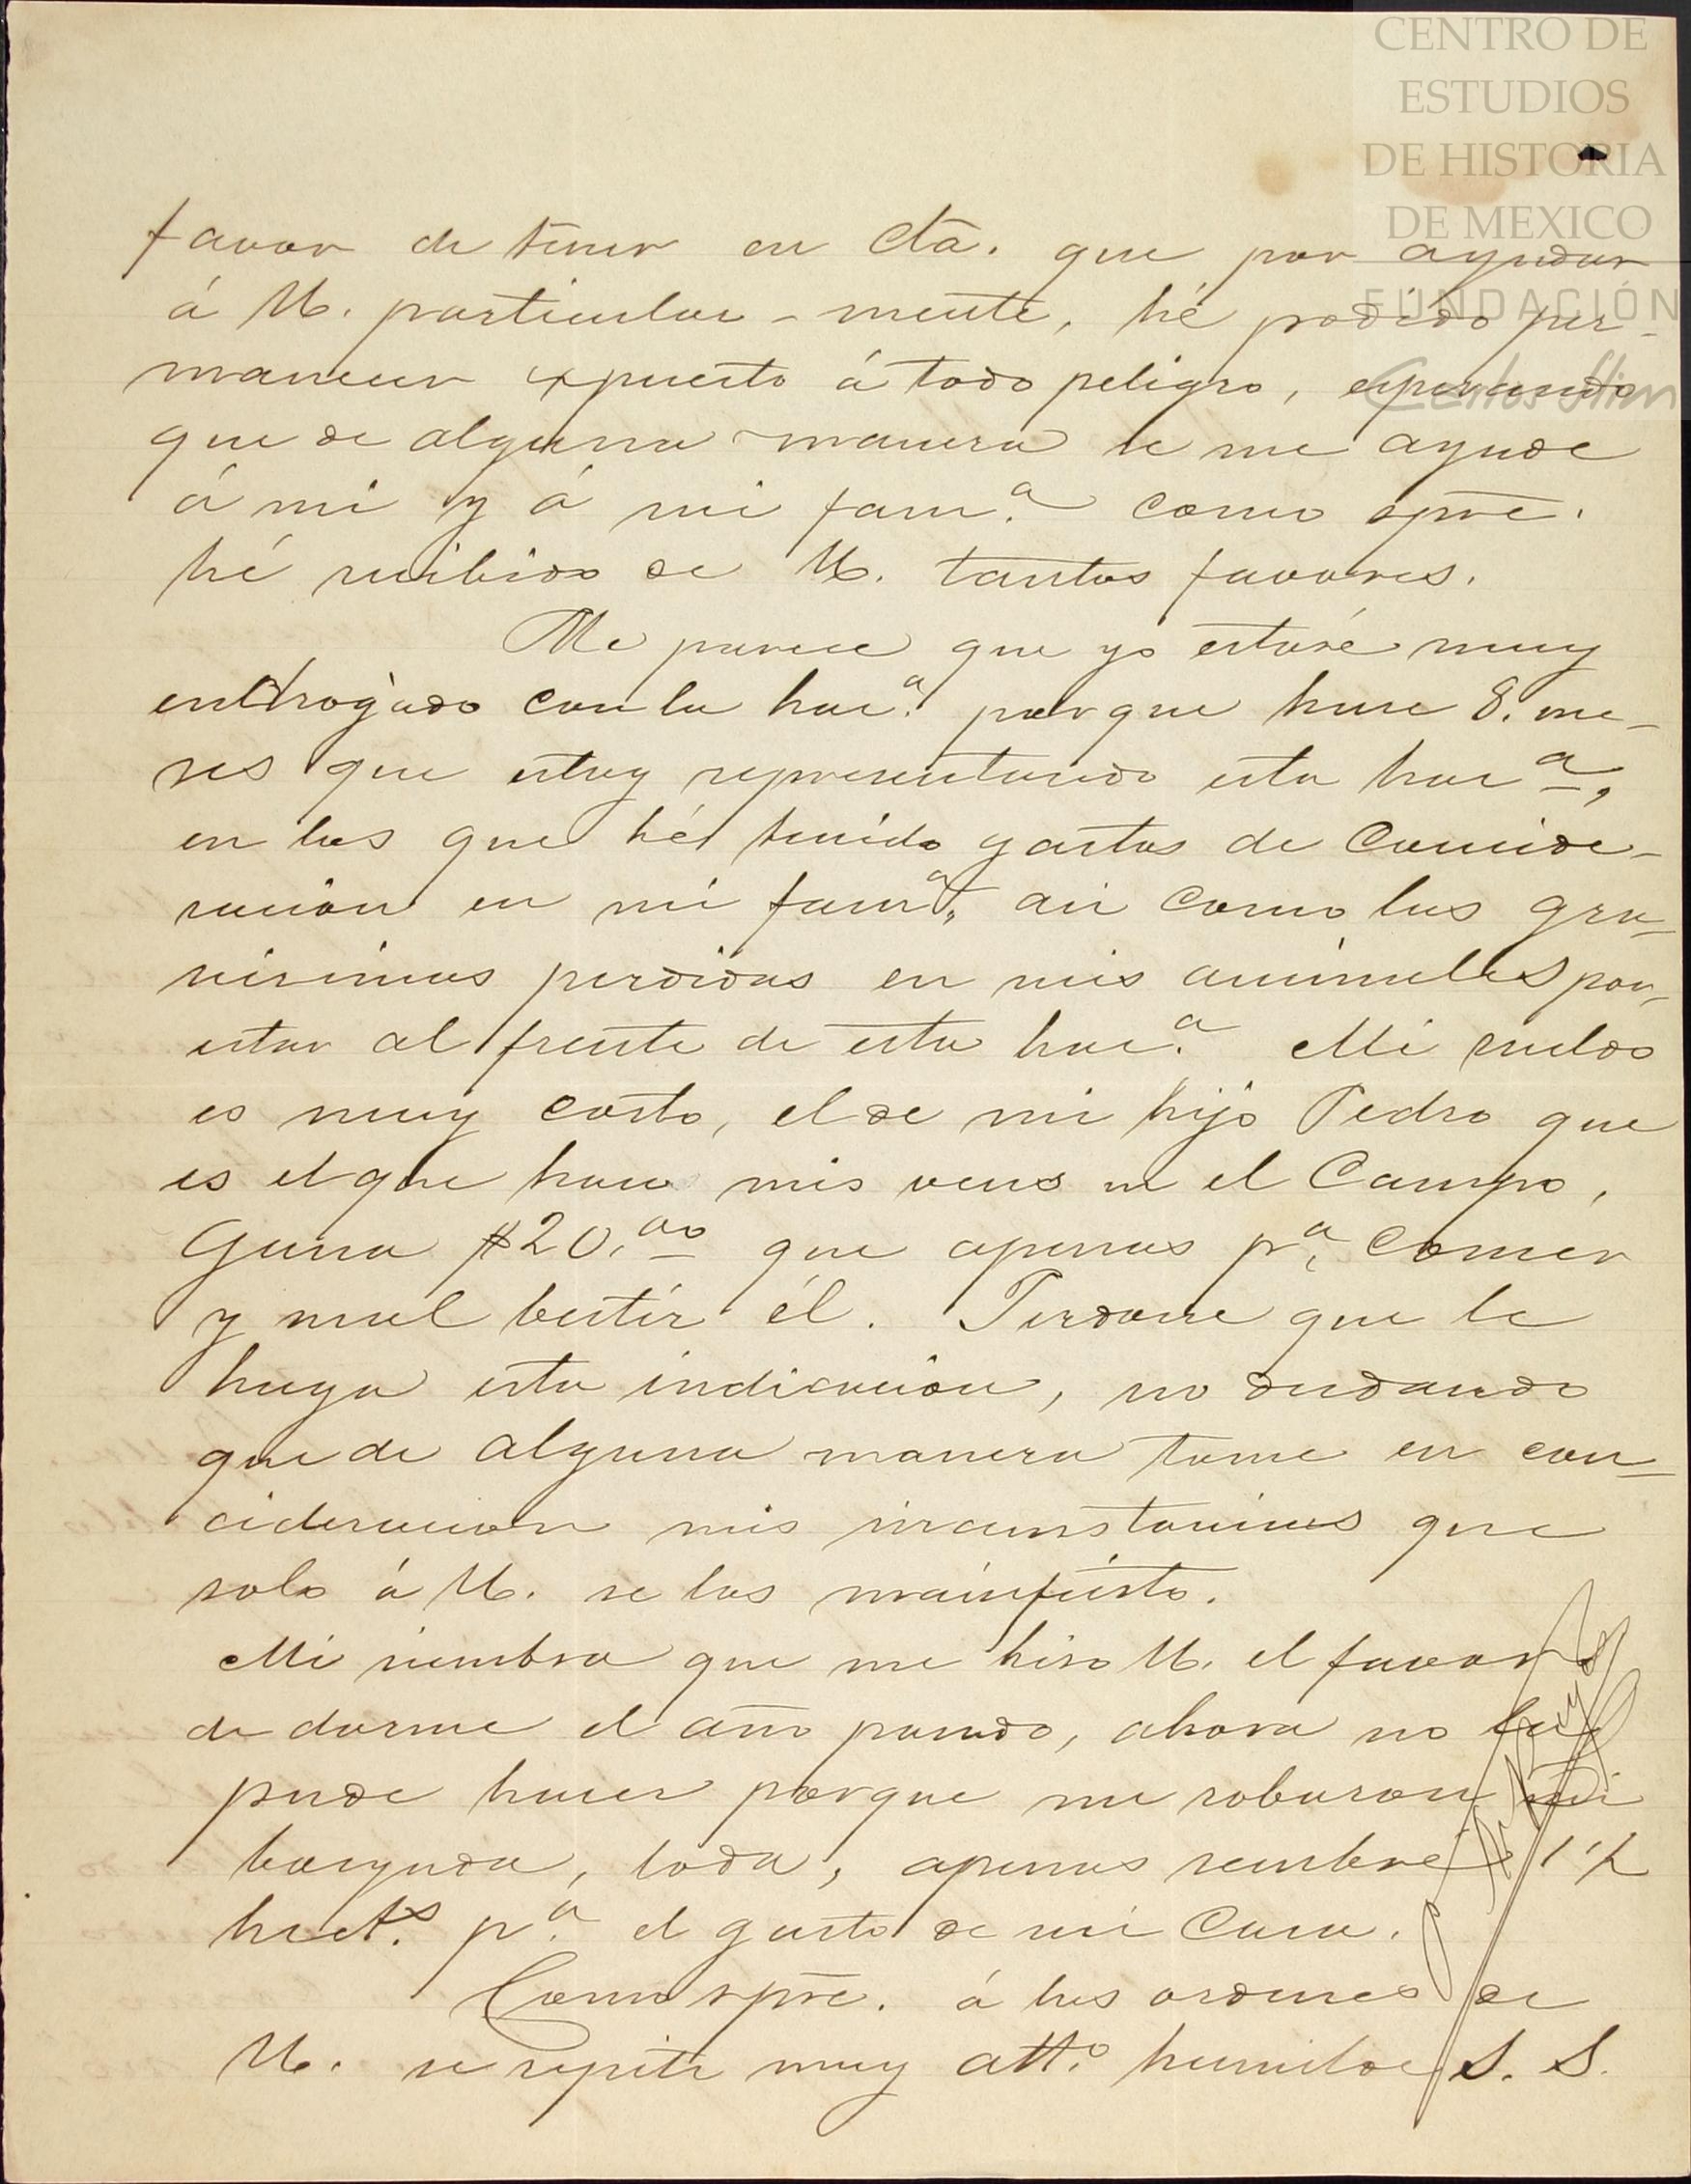 CENTRO DE
ESTUDIOS
DE HISTORIA
DE MEXICO
FUNDACIÓN
Carlos Slim
favor de tener en cta. que por ayudar
á U. particular-mente, hé podido per-
manecer expuesto á todo peligro, esperando
que de alguna manera se me ayude
á mi y á mi fam.ª como spre.
hé recibido de U. tantos favores.
Me parece que yo estaré muy
endrogado con la hac.ª porque hace 8. me-
ses que estoy representando esta hac.ª,
en los que hé tenido gastos de concide-
racion en mi fam.ª, asi como las gra-
visimas perdidas en mis animales por
estar al frente de esta hac.ª Mi sueldo
es muy corto, el de mi hijo Pedro que
es el que hace mis veces en el Campo,
Gana $20.00 que apenas p.ª comer
y mal bestir él. Perdone que le
haga esta indicacion, no dudando
que de alguna manera tome en con-
cideracion mis sircunstancias que
solo á U. se las mainfiesto.
Mi siembra que me hiso U. el favor
de darme el año pasado, ahora no la
pude hacer porque me robaron mi
bueyada, toda, apenas sembré 1 1/2
hect.s p.ª el gasto de mi Casa.
Como spre. á las ordenes de
U. se repite muy att.º humilde S. S.